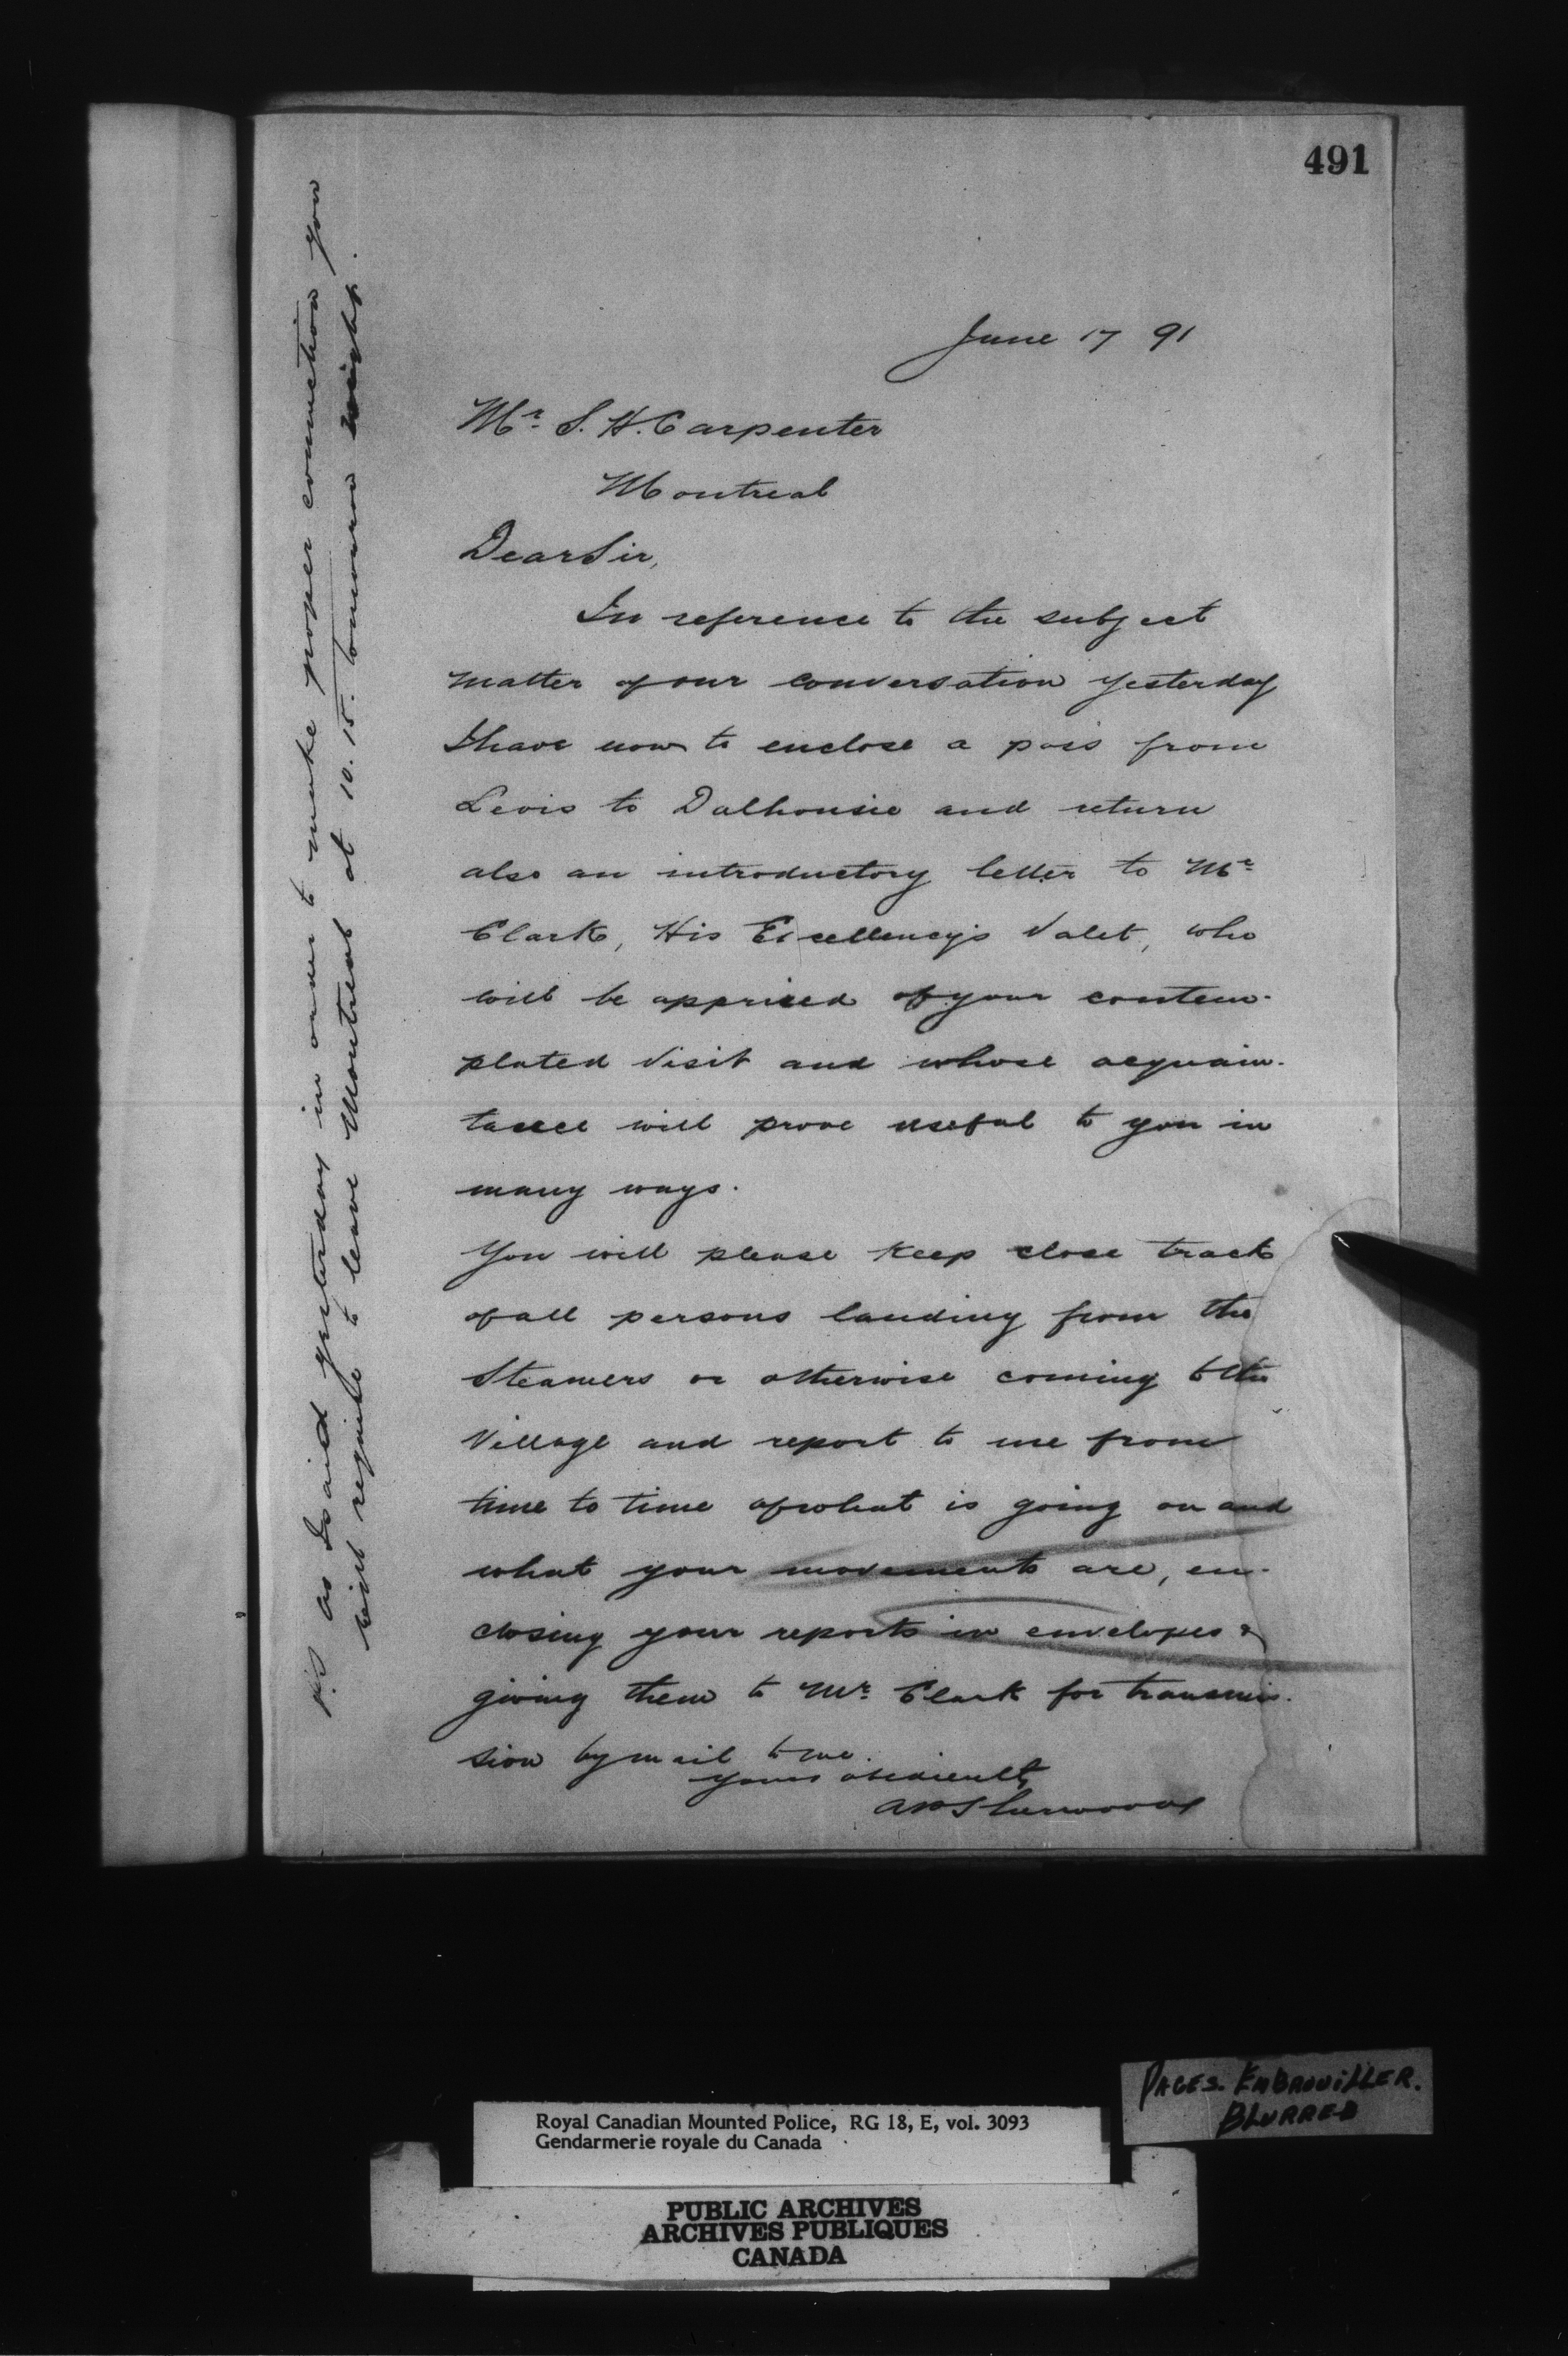 491
June 17 91
Mr. S. H. Carpenter
Montreal
Dear Sir,
In reference to the subject
matter of our conversation yesterday
I have now to enclose a pass from
Levis to Dalhousie and return
also an introductory letter to Mr.
Clark, His Excellency's Valet, who
will be apprised of your contem-
plated visit and whose acquain-
tance will prove useful to you in
many ways.
You will please keep close track
of all persons landing from the
Steamers or otherwise coming to the
Village and report to me from
time to time of what is going on and
what your movements are, en-
closing your reports in envelopes &
giving them to Mr. Clark for transmis-
sion by mail to me.
yours obediently
AP Sherwood
P.S. As I said yesterday in order to make proper connection you
will require to leave Montreal at 10.15. tomorrow night.
PAGES. EMBROUILLER.
BLURRED
Royal Canadian Mounted Police, RG 18, E, vol. 3093
Gendarmerie royale du Canada
PUBLIC ARCHIVES
ARCHIVES PUBLIQUES
CANADA